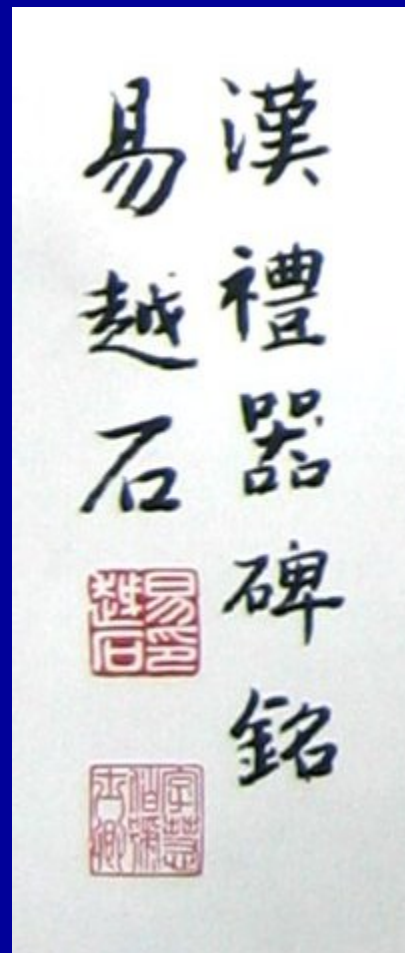 漢禮器碑銘
易越石
易印越石